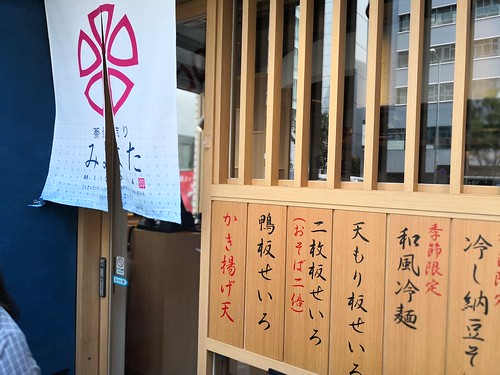 みなた
季節限定
冷し納豆そ
季節限定
和風冷麺
天もり板せいろ
二枚板せいろ
(おそば二倍)
鴨板せいろ
かき揚げ天